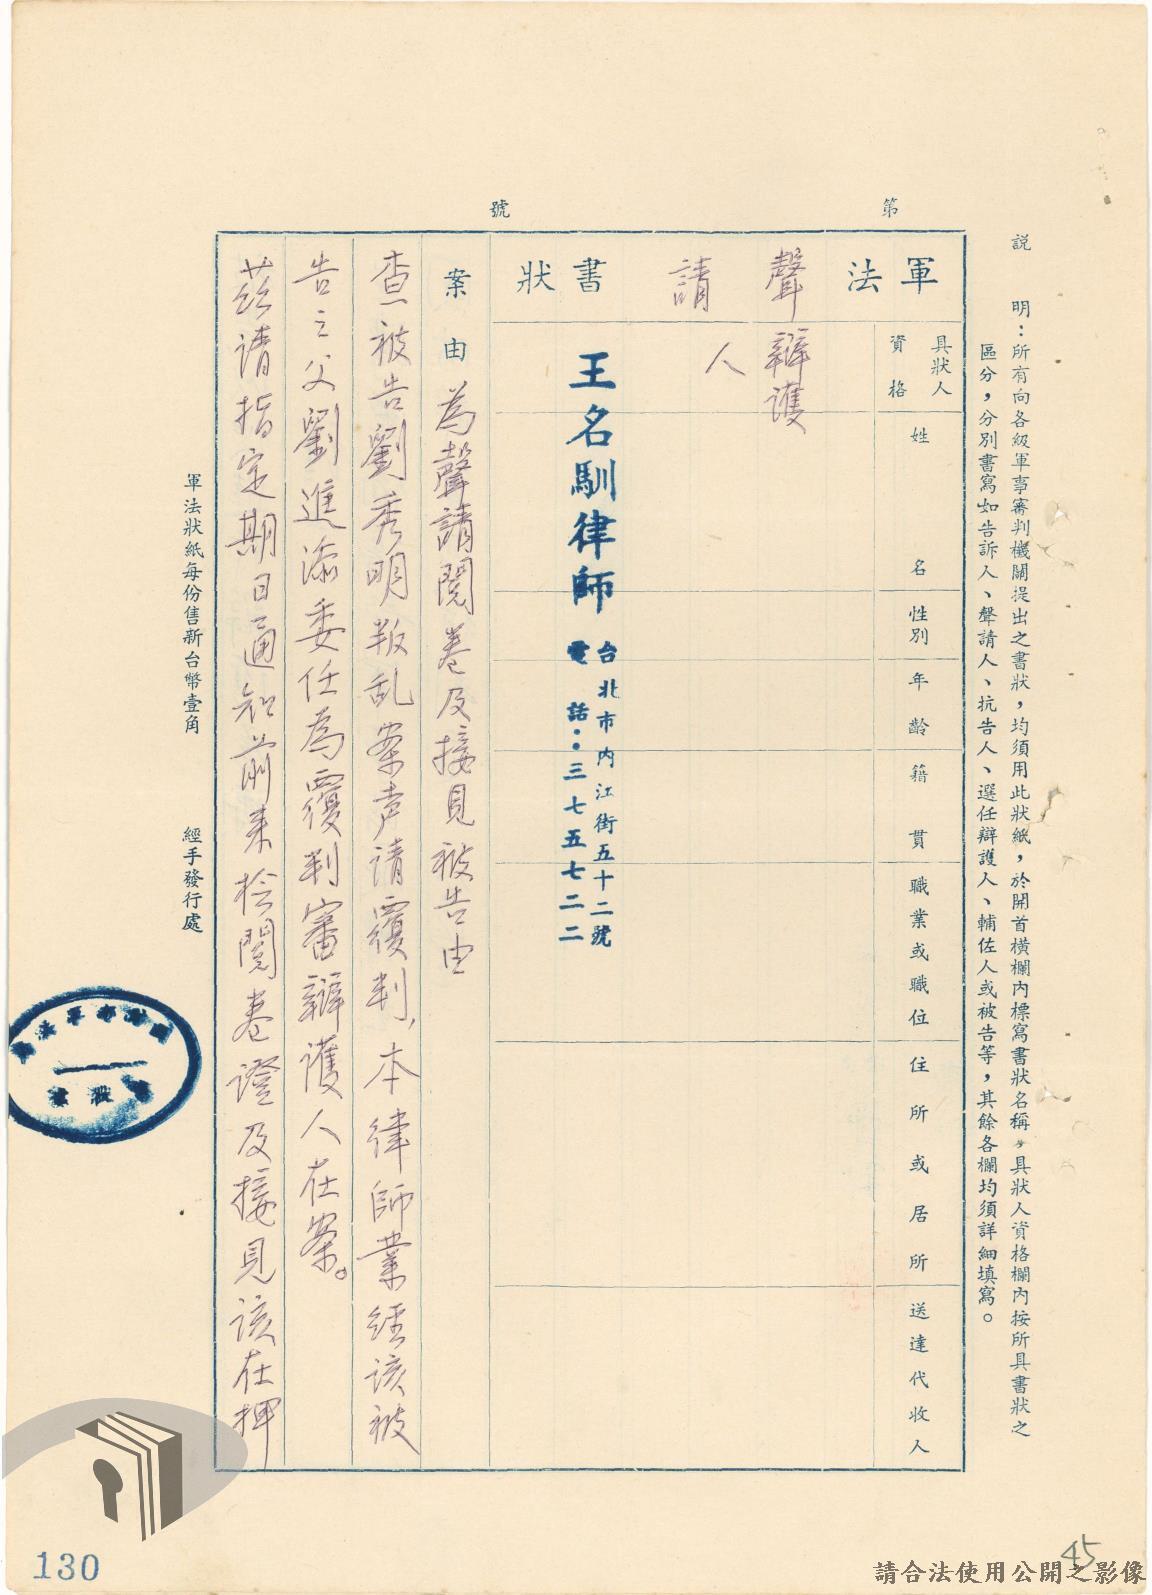 說　明：所有向各級軍事審判機關提出之書狀，均須用此狀紙，於開首橫欄內標寫書狀名稱，具狀人資格欄內按所具書狀之
區分，分別書寫如告訴人、聲請人、抗告人、選任辯護人、輔佐人或被告等，其餘各欄均須詳細填寫。
第　號
軍法聲請書狀
具狀人資格
姓名
性別
年齡
籍貫
職業或職位
住所或居所
送達代收人
辯護
人
王名馴律師
台北市內江街五十二號
電話：三七五七二二
案由　為聲請閱卷及接見被告由
查被告劉秀明叛乱案声請覆判，本律師業經該被
告之父劉進添委任為覆判審辯護人在案。
茲請指定期日通知前來檢閱卷證及接見該在押
軍法狀紙每份售新台幣壹角　經手發行處
130
45
請合法使用公開之影像